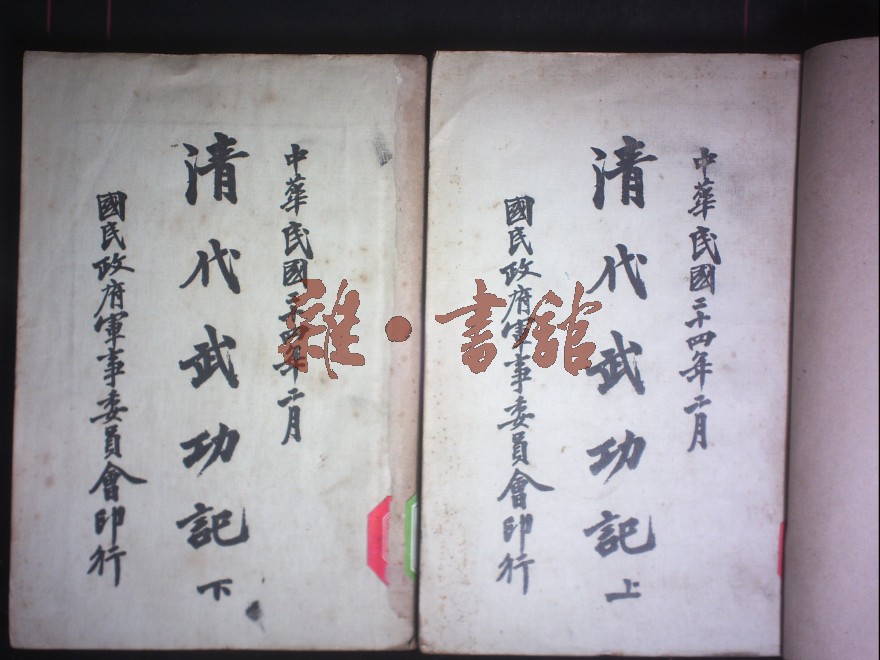 中華民國二十四年二月
清代武功記 上
國民政府軍事委員會印行
中華民國二十四年二月
清代武功記 下
國民政府軍事委員會印行
雜·書館